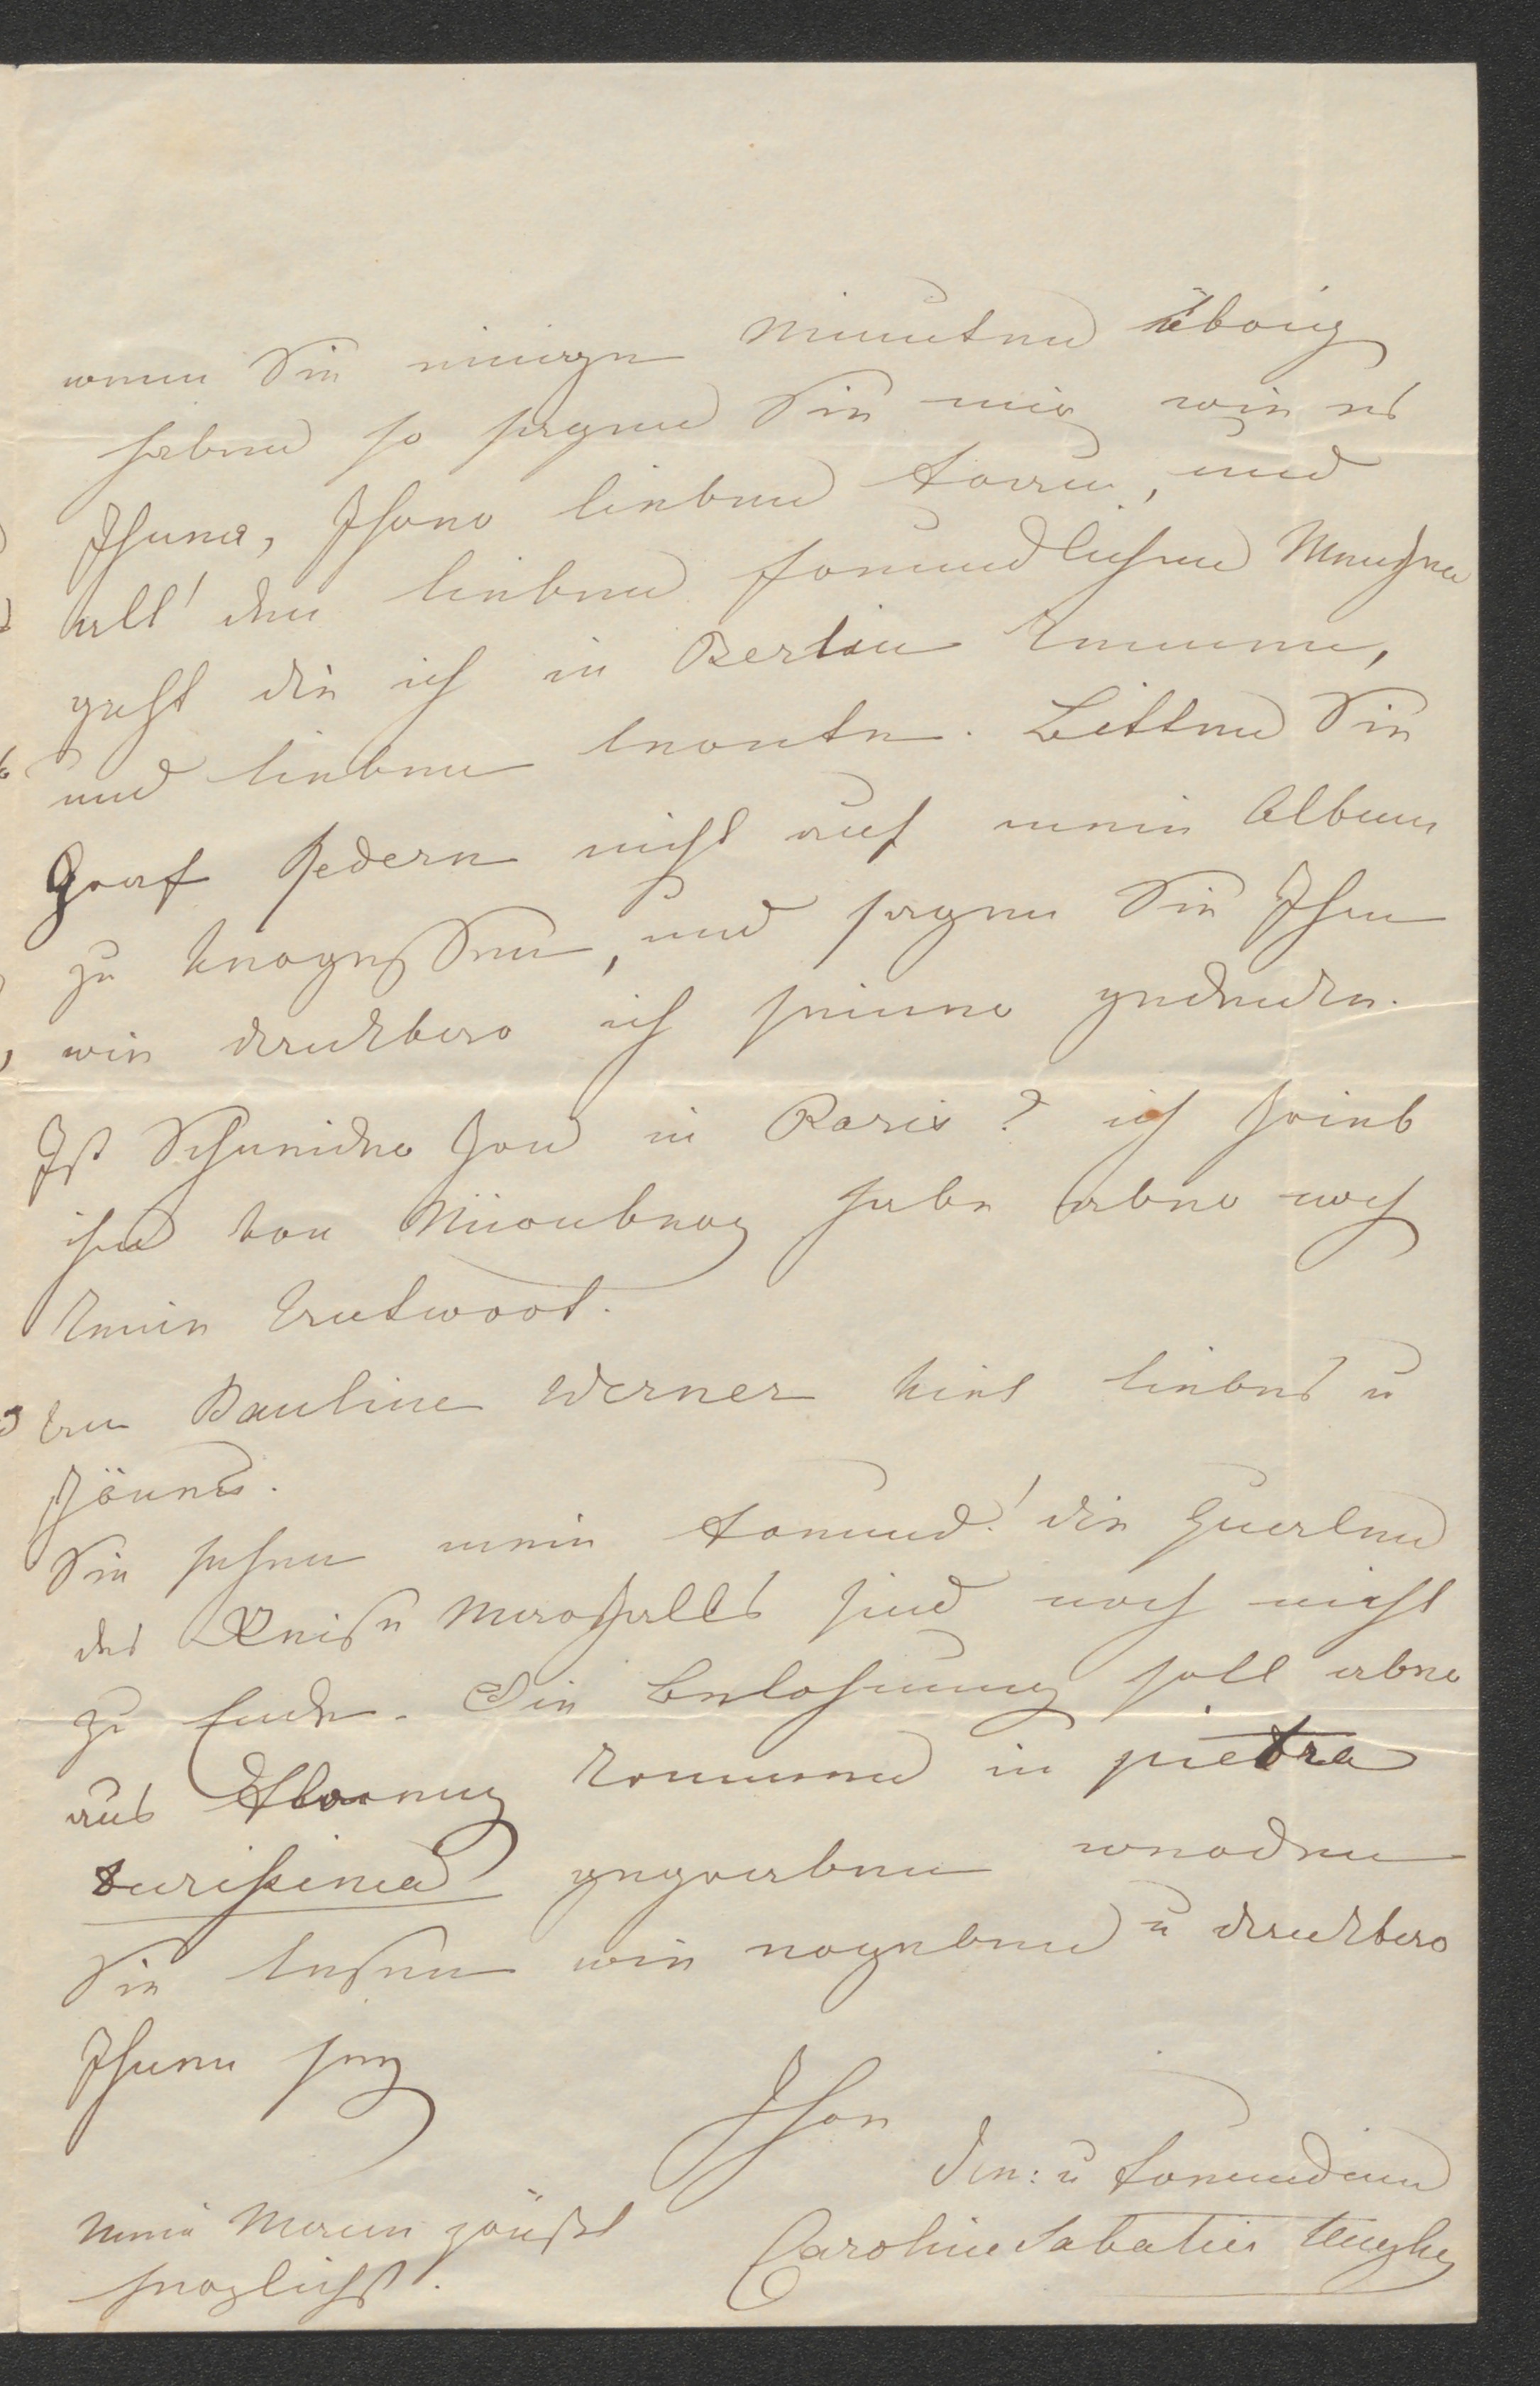 wenn Sie einige Minuten übrig
haben so sagen Sie mir wie es
Ihnen, Ihrer lieben Frau, und
all' den lieben freundlichen Menschen
geht die ich in Berlin kenne,
und lieben lernte. Bitten Sie
Graf Redern nicht auf mein Album
zu vergessen, und sagen Sie Ihm
wie dankbar ich seiner gedenke.
Ist Schneider schon in Paris? ich schrieb
ihm von Nürnberg habe aber noch
keine Antwort.
An Pauline Werner viel liebes u
schönes.
Sie sehen mein Freund! die Qualen
des Reise Marschalls sind noch nicht
zu Ende. Die Belohnung soll aber
aus Florenz kommen in pietra
durissima gegraben werden
Sie lassen wie ergeben u dankbar
Ihnen sey
Ihre
Die: u Freundin
Meine Mama grüßt
herzlichst.
Caroline Sabatier Ungher